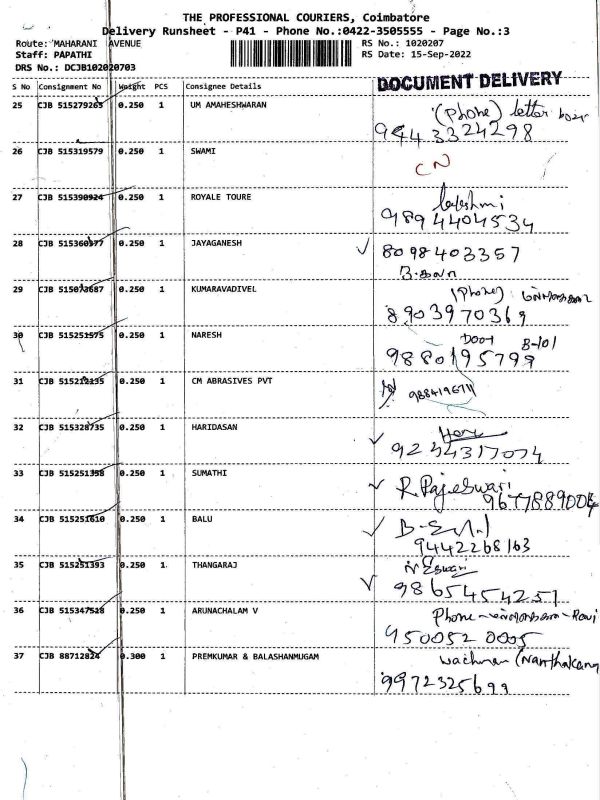 THE PROFESSIONAL COURIERS, Coimbatore
Delivery Runsheet - P41 - Phone No.:0422-3505555 - Page No.:3
Route: MAHARANI AVENUE RS No.: 1020207
Staff: PAPATHI RS Date: 15-Sep-2022
DRS No.: DCJB1020020703
DOCUMENT DELIVERY
S No Consignment No Weight PCS Consignee Details
25 CJB 515279265 0.250 1 UM AMAHESHWARAN (Phone) letter box
9443324298
26 CJB 515319579 0.250 1 SWAMI CN
27 CJB 515390924 0.250 1 ROYALE TOURE
9894404534
28 CJB 515360377 0.250 1 JAYAGANESH 8098403357
29 CJB 515073687 0.250 1 KUMARAVADIVEL (Phone)
8903970369
30 CJB 515251575 0.250 1 NARESH Door B-101
9880195799
31 CJB 515212135 0.250 1 CM ABRASIVES PVT
32 CJB 515328735 0.250 1 HARIDASAN
9244317074
33 CJB 515251358 0.250 1 SUMATHI R. Rajeswari
34 CJB 515251610 0.250 1 BALU
9442268163
35 CJB 515251393 0.250 1 THANGARAJ N Eswari
9865454251
36 CJB 515347518 0.250 1 ARUNACHALAM V Phone
950052 0005
37 CJB 88712824 0.300 1 PREMKUMAR & BALASHANMUGAM
9972325699